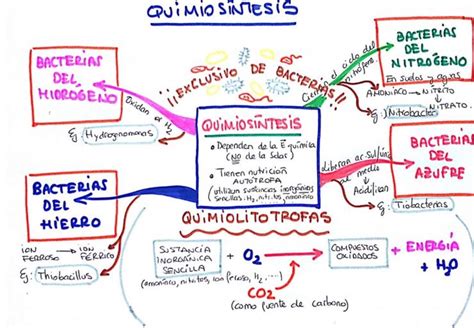 QUIMIOSÍNTESIS
¡¡EXCLUSIVO DE BACTERIAS!!
BACTERIAS
DEL
HIDRÓGENO
Oxidan el H₂
Ej: Hydrogenomonas
BACTERIAS
DEL
HIERRO
ION FERROSO → ION FÉRRICO
Ej: Thiobacillus
QUIMIOSÍNTESIS
• Dependen de la E química
(NO de la solar)
• Tienen nutrición
AUTÓTROFA
(utilizan sustancias inorgánicas
sencillas: H₂, nitritos, amoniaco
QUIMIOLITOTROFAS
el ciclo del
nitrógeno
BACTERIAS
DEL
NITRÓGENO
En suelos y aguas
AMONÍACO → NITRITO
↳ NITRATO
Ej: Nitrobacter
liberan ac. sulfúrico
al medio
↳ Acidifican
BACTERIAS
DEL
AZUFRE
Ej: Tiobacterias
SUSTANCIA
INORGÁNICA
SENCILLA
+ O₂
COMPUESTOS
OXIDADOS
+ ENERGÍA
+ H₂O
(amoniaco, nitritos, ion ferroso, H₂...)
CO₂
(como fuente de carbono)